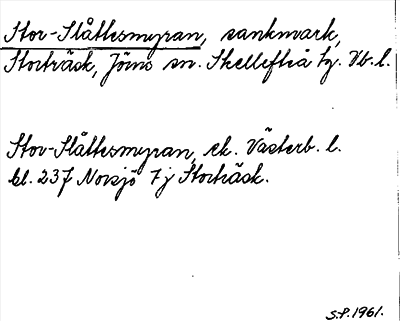 Stor-Slåttesmyran, sankmark,
Storträsk, Jörns sn. Skellefteå tg. Vb.l.
Stor-Slåttesmyran, ek. Västerb. l.
bl. 237 Norsjö 7j Storträsk.
S.P. 1961.